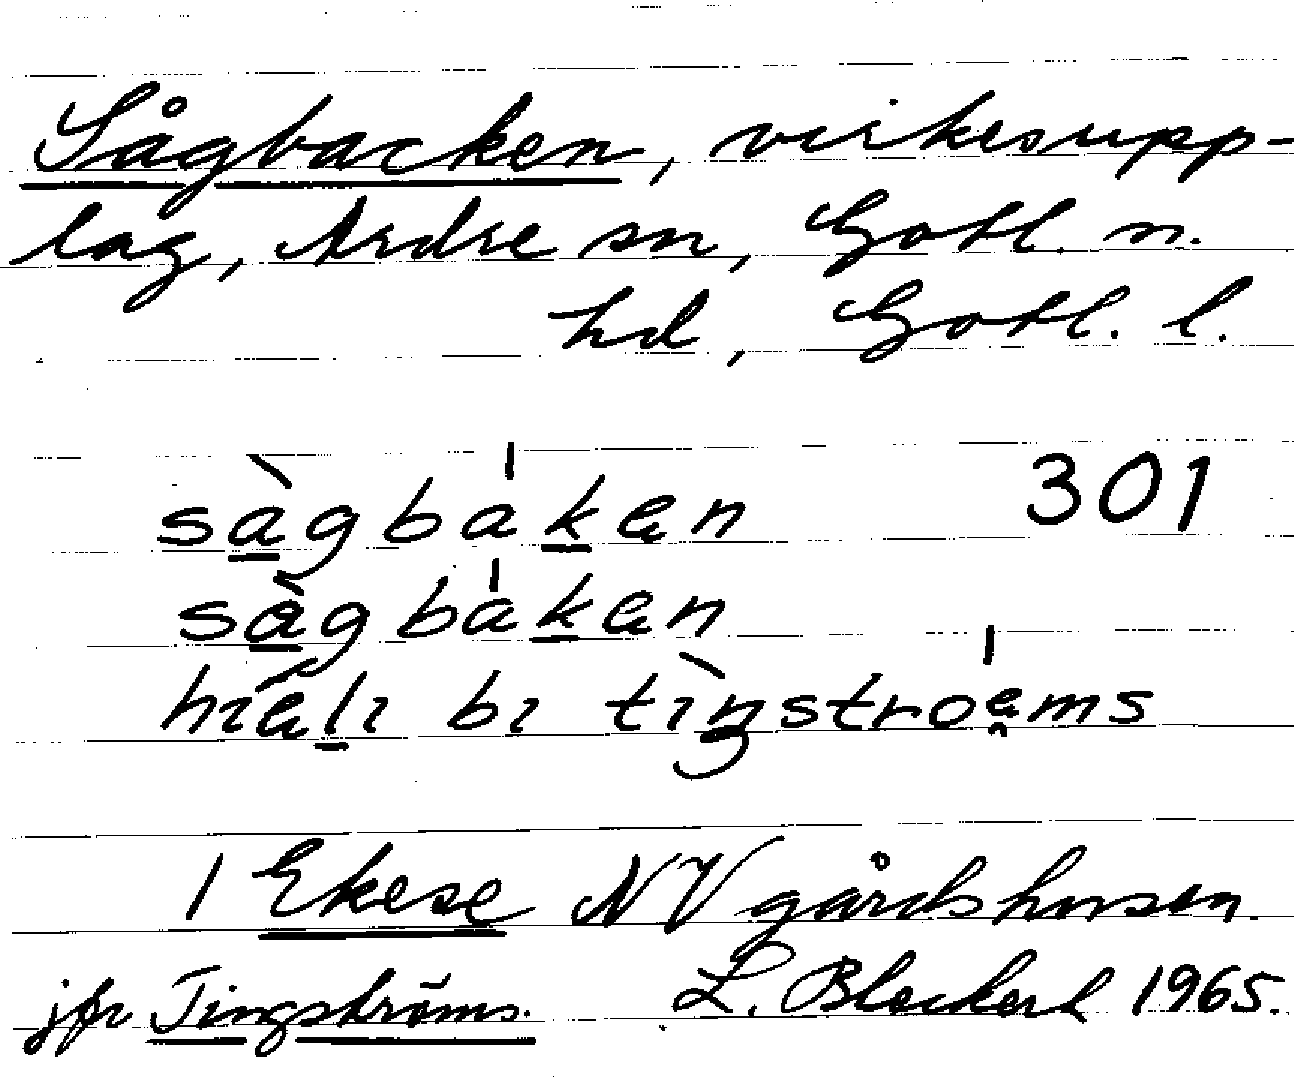 Sågbacken, virkesupp-
lag, Ardre sn, Gotl. n.
hd, Gotl. l.
sàgbákęn 301
sàgbákęn
hięli bi tìŋstroęms
1 Ekese NV gårdshusen.
jfr Tingströms. L. Bleckert 1965.